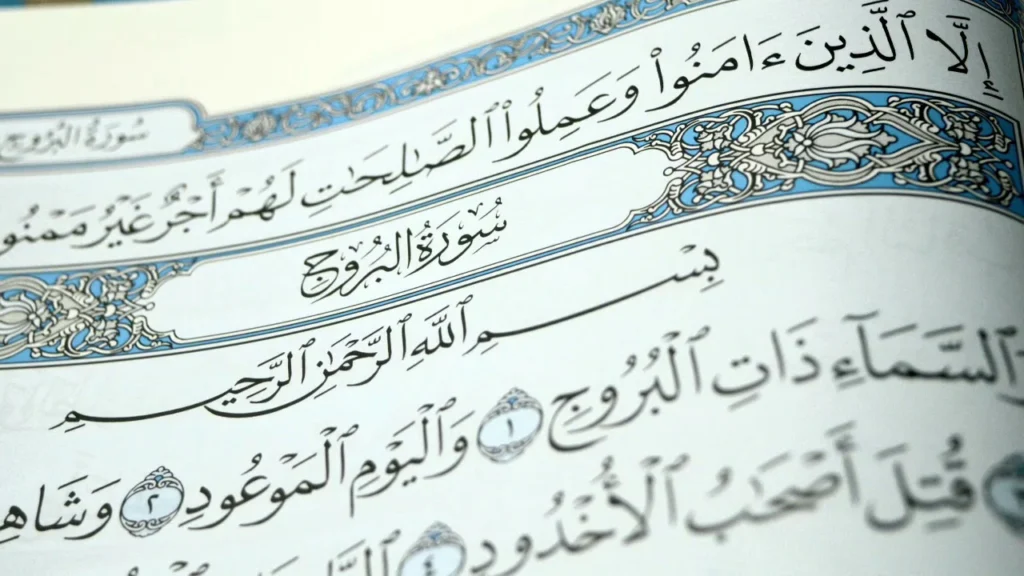 سُورَةُ البُرُوجِ
إِلَّا ٱلَّذِينَ ءَامَنُوا۟ وَعَمِلُوا۟ ٱلصَّـٰلِحَـٰتِ لَهُمْ أَجْرٌ غَيْرُ مَمْنُو
سُورَةُ البُرُوجِ
بِسْمِ ٱللَّهِ ٱلرَّحْمَـٰنِ ٱلرَّحِيمِ
وَٱلسَّمَآءِ ذَاتِ ٱلْبُرُوجِ ١ وَٱلْيَوْمِ ٱلْمَوْعُودِ ٢ وَشَاهِ
قُتِلَ أَصْحَـٰبُ ٱلْأُخْدُودِ ٤